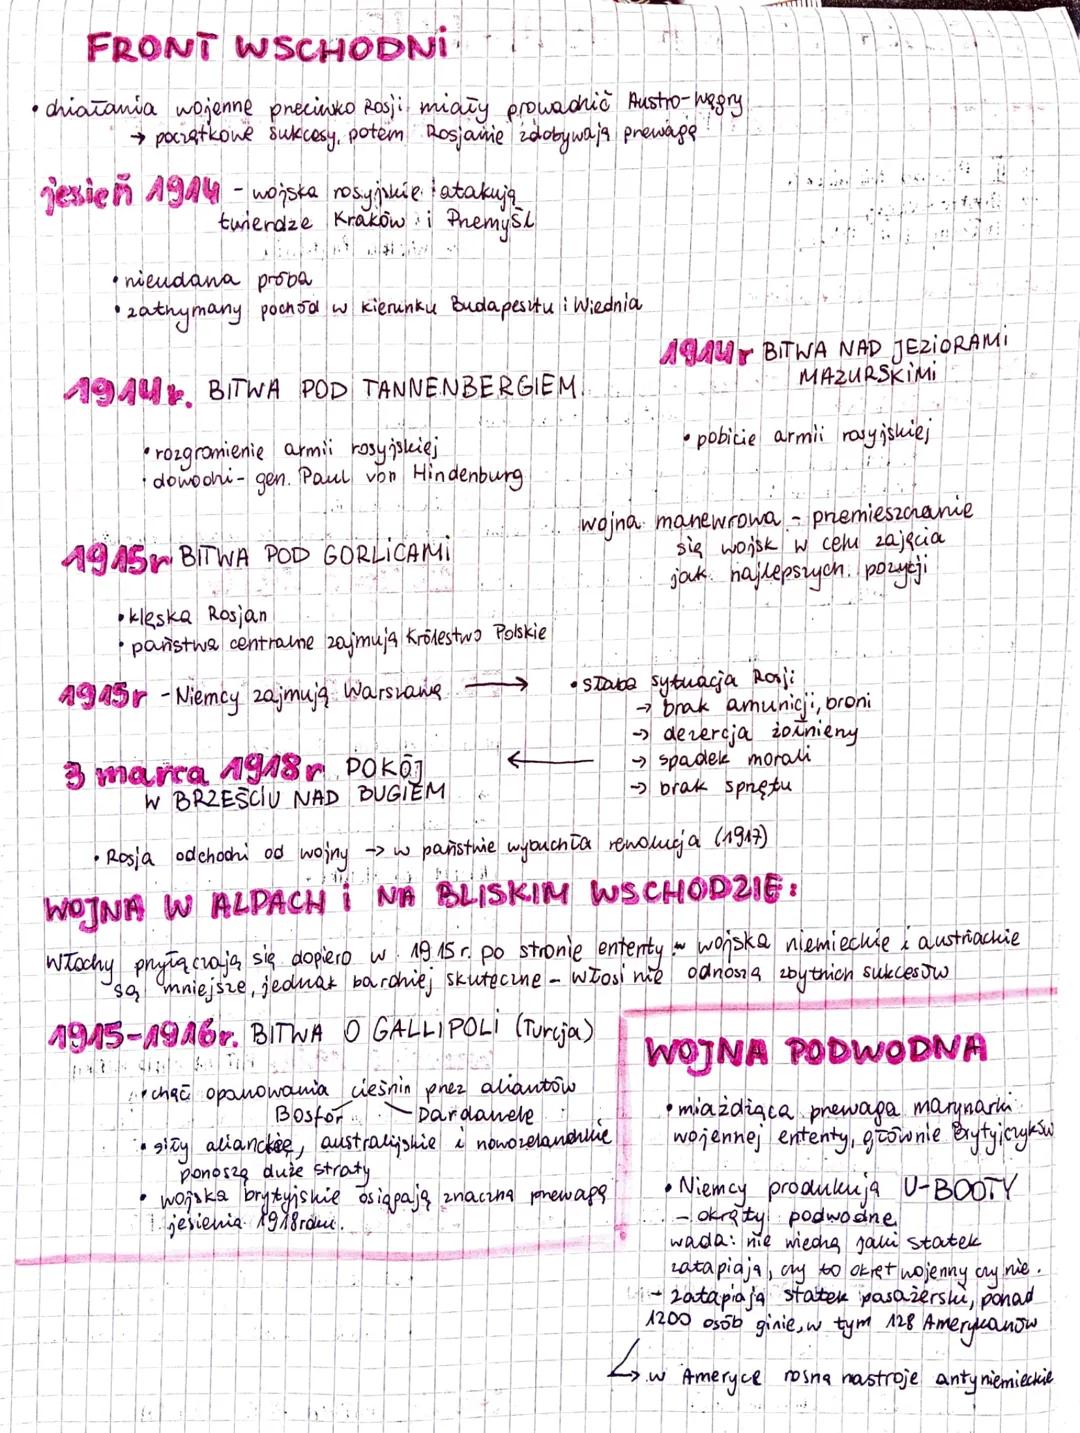 FRONT WSCHODNI
• działania wojenne przeciwko Rosji miały prowadzić Austro-Węgry
→ początkowe sukcesy, potem Rosjanie zdobywają przewagę
jesień 1914 - wojska rosyjskie atakują
twierdze Kraków i Przemyśl
• nieudana próba
• zatrzymany pochód w kierunku Budapesztu i Wiednia
1914r BITWA NAD JEZIORAMI
MAZURSKIMI
• pobicie armii rosyjskiej
1914r. BITWA POD TANNENBERGIEM
• rozgromienie armii rosyjskiej
• dowodzi - gen. Paul von Hindenburg
wojna manewrowa - przemieszczanie
się wojsk w celu zajęcia
jak najlepszych pozycji
1915r BITWA POD GORLICAMI
• klęska Rosjan
• państwa centralne zajmują Królestwo Polskie
1915r - Niemcy zajmują Warszawę →
• słaba sytuacja Rosji
→ brak amunicji, broni
→ dezercja żołnierzy
→ spadek morali
→ brak sprzętu
←
3 marca 1918r POKÓJ
W BRZEŚCIU NAD BUGIEM
• Rosja odchodzi od wojny → w państwie wybuchła rewolucja (1917)
WOJNA W ALPACH i NA BLISKIM WSCHODZIE:
Włochy przyłączają się dopiero w 1915r. po stronie ententy ~ wojska niemieckie i austriackie
są mniejsze, jednak bardziej skuteczne - Włosi nie odnoszą zbytnich sukcesów
1915-1916r. BITWA O GALLIPOLI (Turcja)
• chęć opanowania cieśnin przez aliantów
Bosfor Dardanele
• siły alianckie, australijskie i nowozelandzkie
ponoszą duże straty
• wojska brytyjskie osiągają znaczną przewagę
jesienią 1918 roku.
WOJNA PODWODNA
• miażdżąca przewaga marynarki
wojennej ententy, głównie Brytyjczyków
• Niemcy produkują U-BOOTY
- okręty podwodne
wada: nie wiedzą jaki statek
zatapiają, czy to okręt wojenny czy nie.
- zatapiają statek pasażerski, ponad
1200 osób ginie, w tym 128 Amerykanów
↳ w Ameryce rosną nastroje antyniemieckie